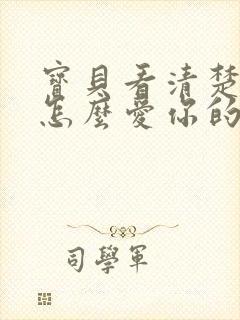 寶貝看清楚
怎麼愛你的
司學軍